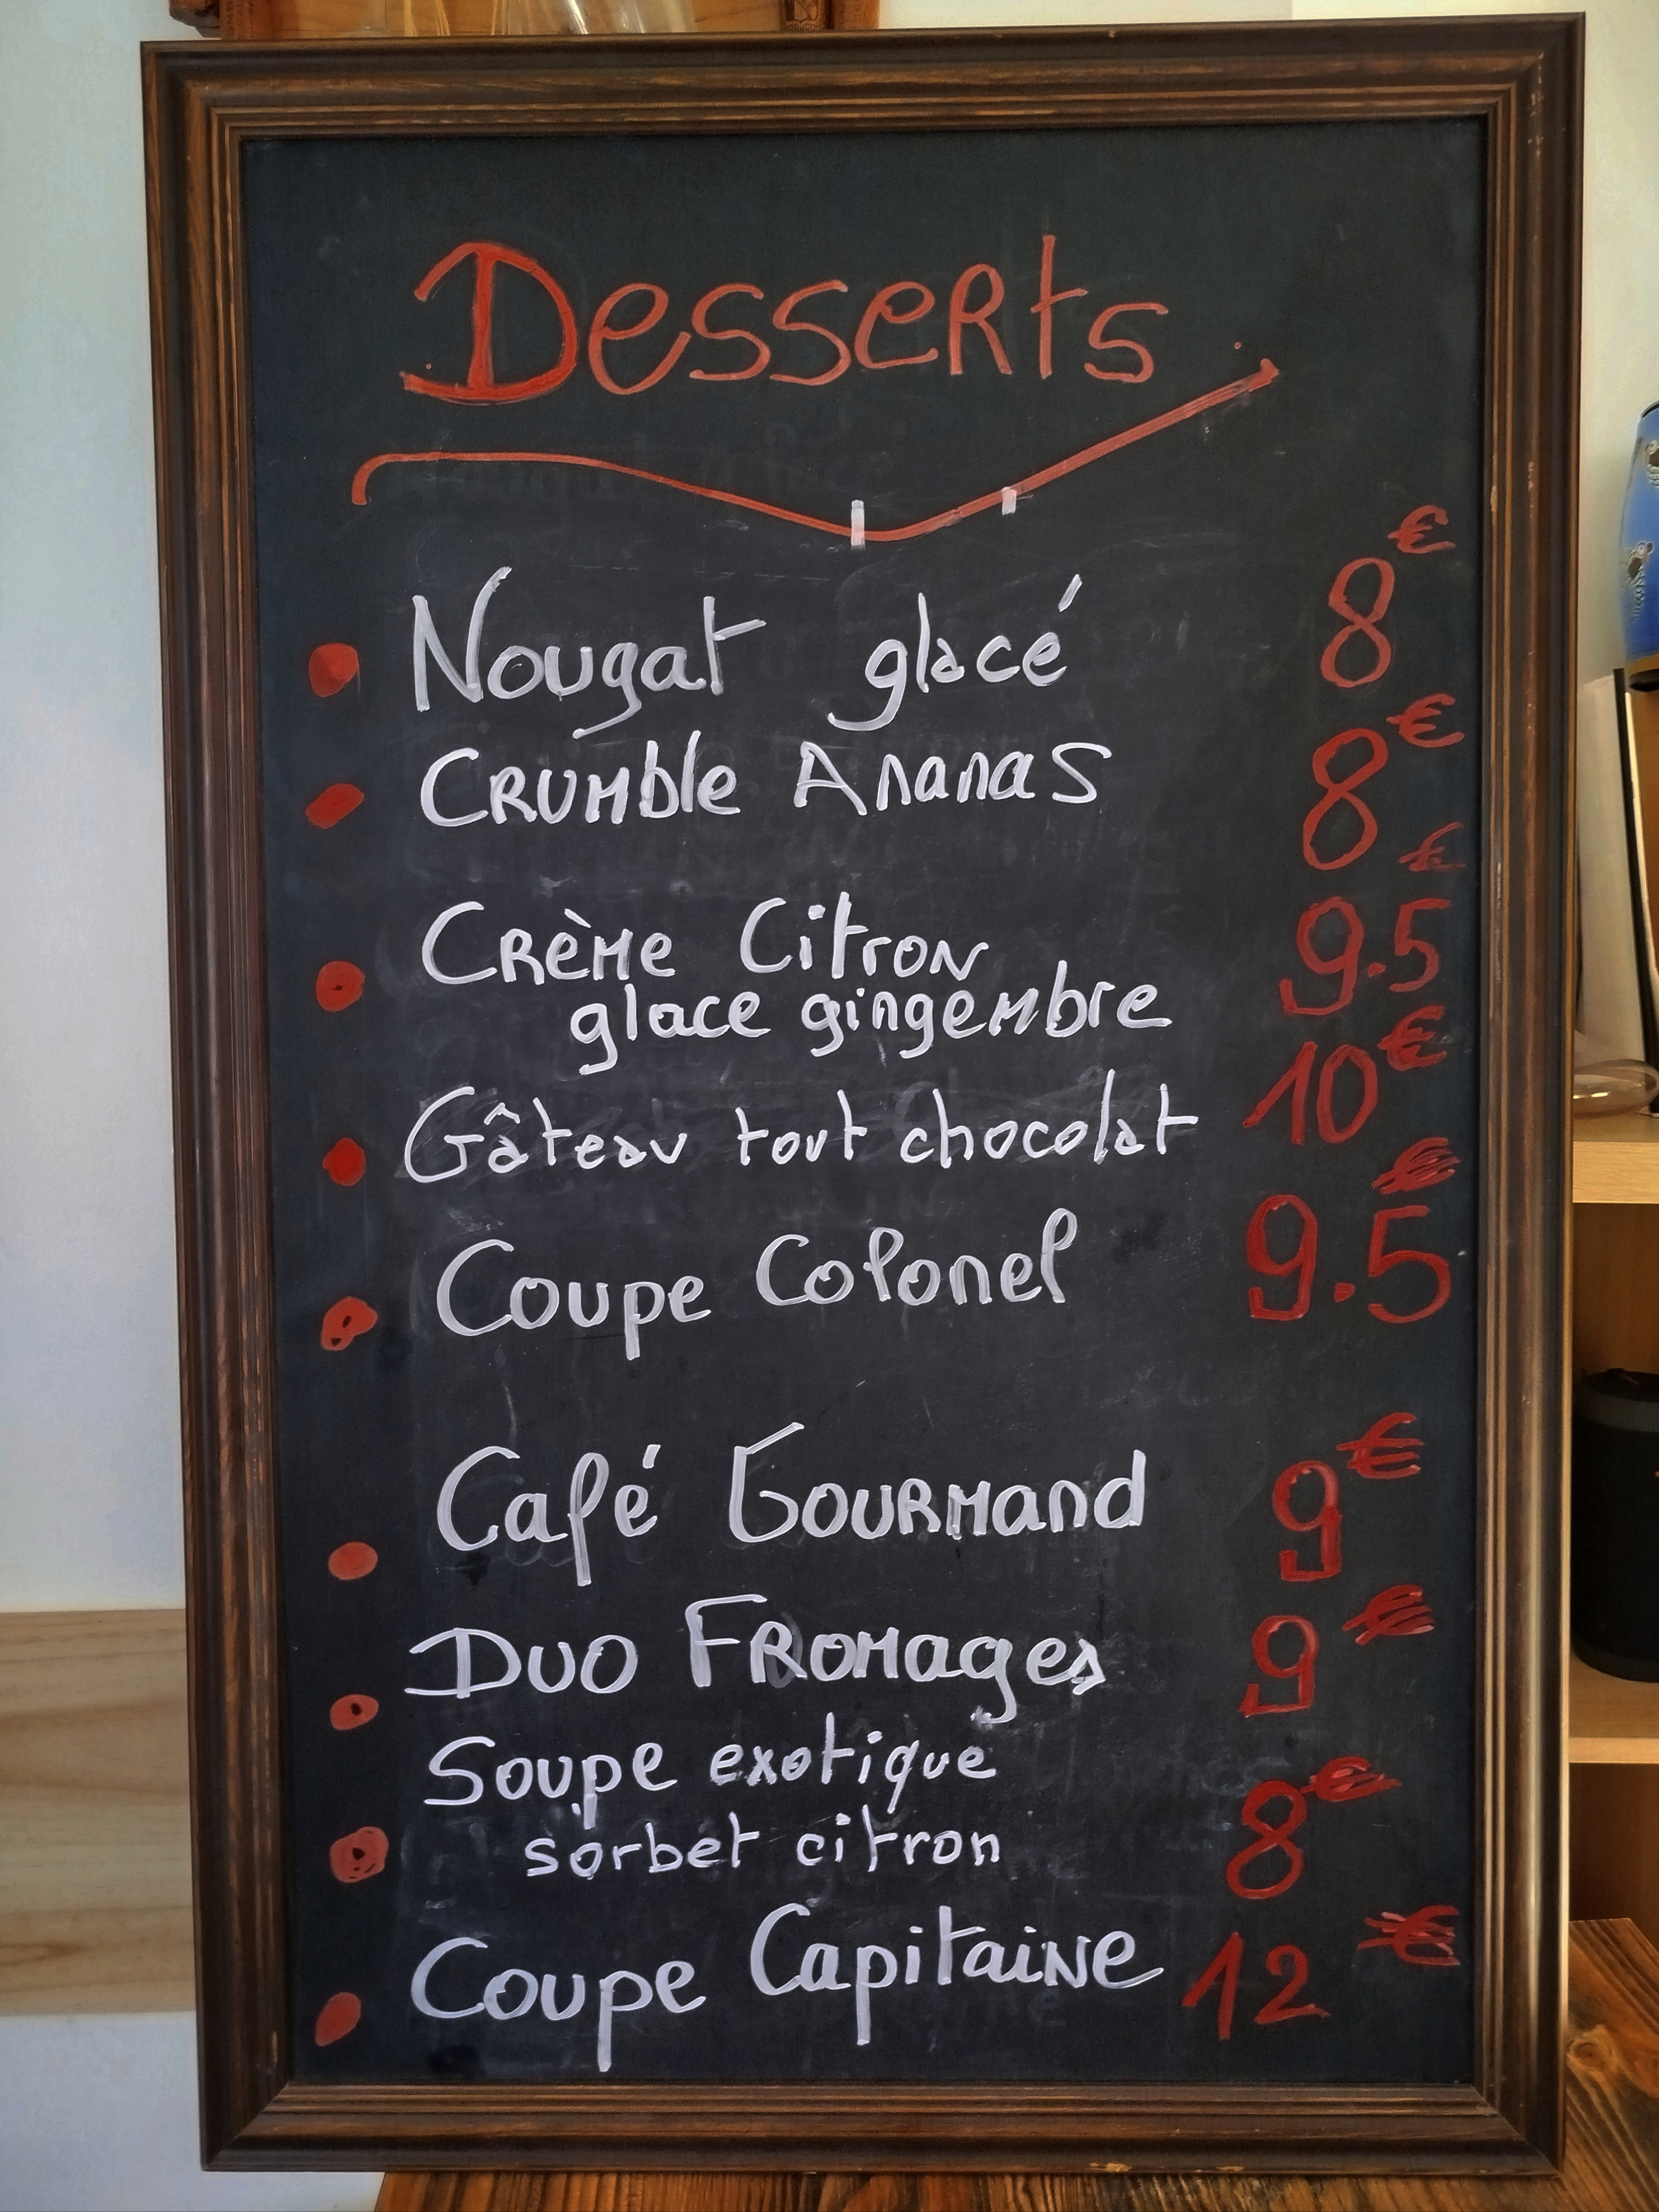 Desserts
Nougat glacé 8€
Crumble Ananas 8€
Crème Citron 9.5€
glace gingembre
Gâteau tout chocolat 10€
Coupe Colonel 9.5€
Café Gourmand 9€
Duo Fromages 9€
Soupe exotique
sorbet citron 8€
Coupe Capitaine 12€